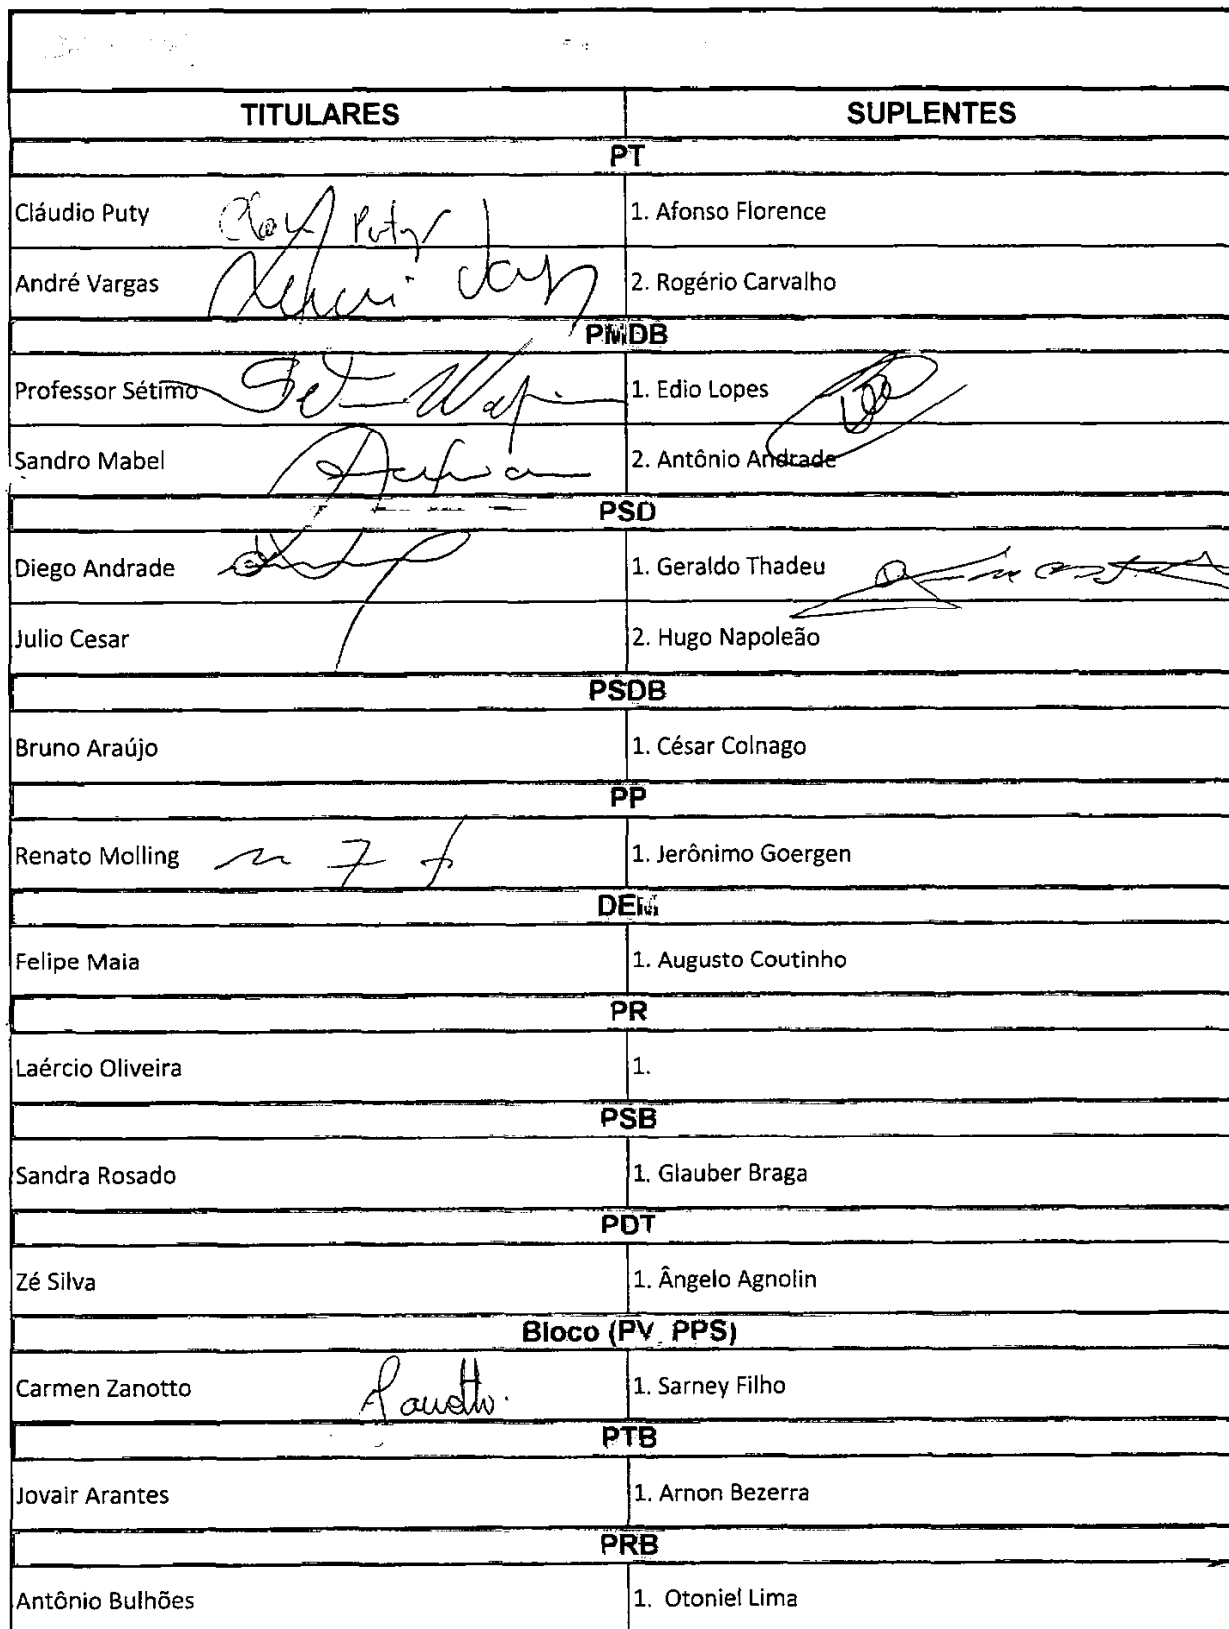 TITULARES SUPLENTES
PT
Cláudio Puty 1. Afonso Florence
André Vargas 2. Rogério Carvalho
PMDB
Professor Sétimo 1. Edio Lopes
Sandro Mabel 2. Antônio Andrade
PSD
Diego Andrade 1. Geraldo Thadeu
Julio Cesar 2. Hugo Napoleão
PSDB
Bruno Araújo 1. César Colnago
PP
Renato Molling 1. Jerônimo Goergen
DEM
Felipe Maia 1. Augusto Coutinho
PR
Laércio Oliveira 1.
PSB
Sandra Rosado 1. Glauber Braga
PDT
Zé Silva 1. Ângelo Agnolin
Bloco (PV, PPS)
Carmen Zanotto 1. Sarney Filho
PTB
Jovair Arantes 1. Arnon Bezerra
PRB
Antônio Bulhões 1. Otoniel Lima